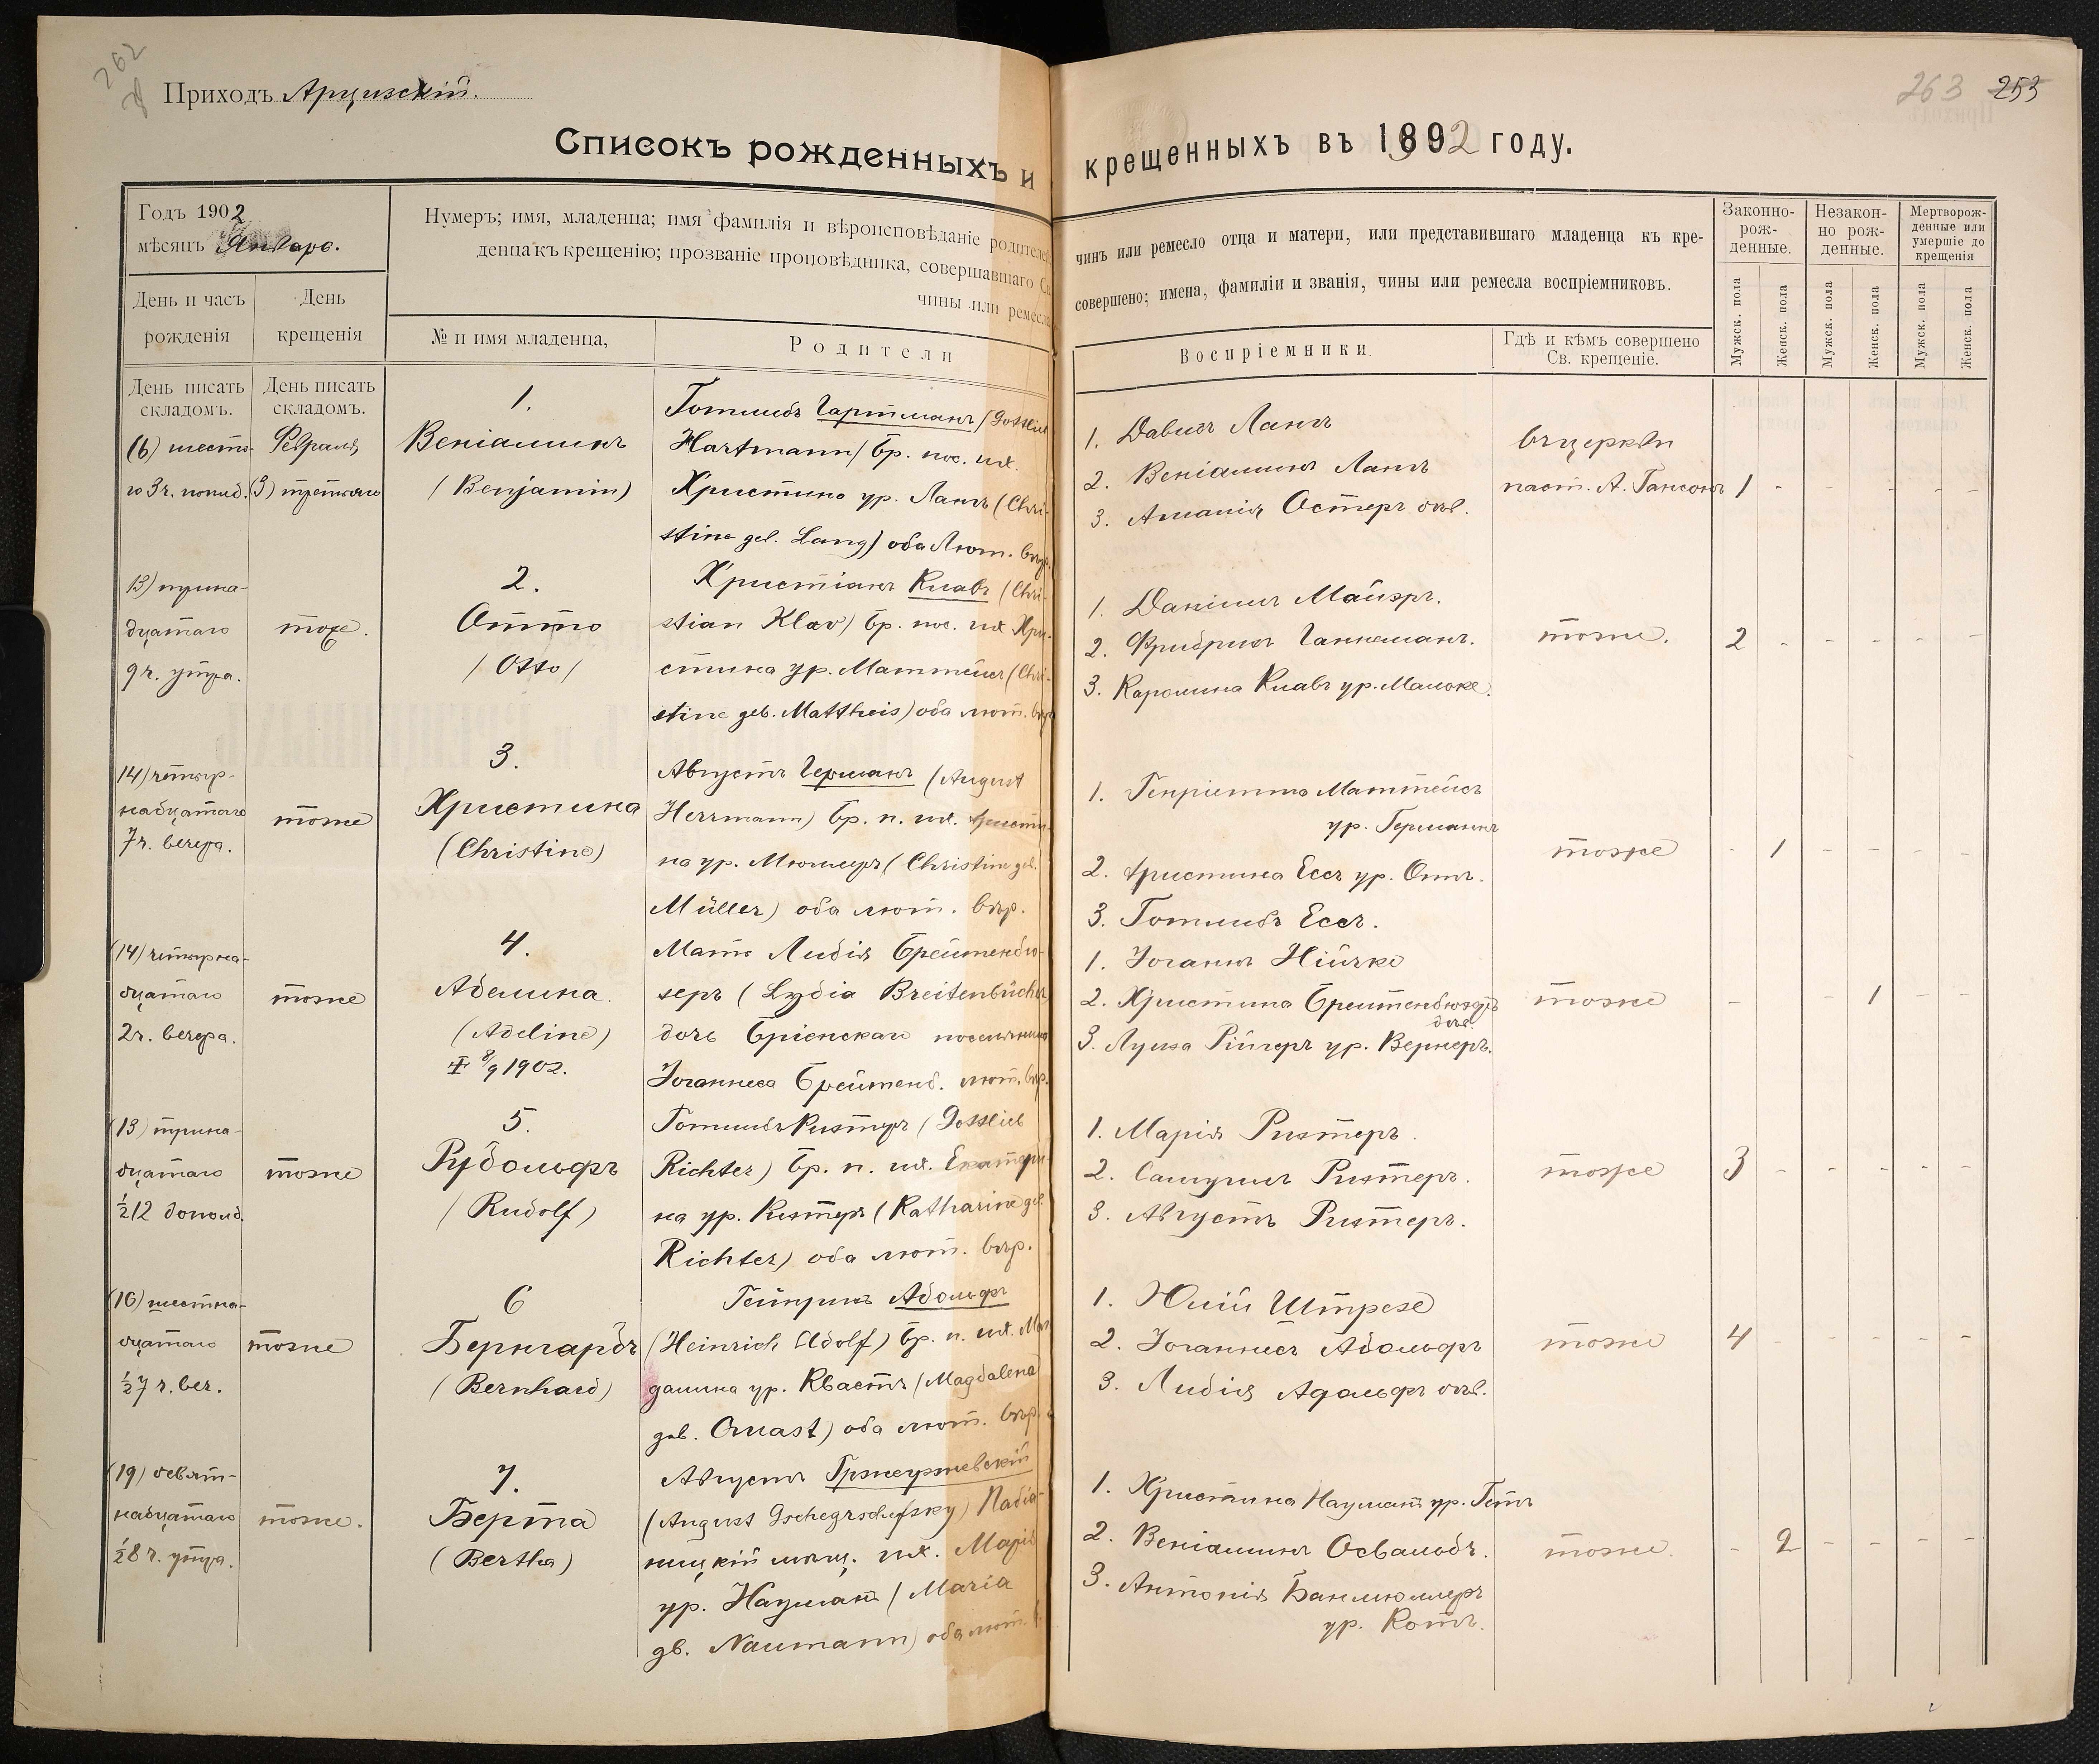 262
Приходъ Арцизскій.
263 253
Списокъ рожденныхъ и крещенныхъ въ 1892 году.
Годъ 1902
мѣсяцъ Январь.
День и часъ рожденія
День крещенія
Нумеръ; имя, младенца; имя фамилія и вѣроисповѣданіе родителей
денца къ крещенію; прозваніе проповѣдника, совершавшаго Св
чины или ремесла
№ и имя младенца,
Родители
чинъ или ремесло отца и матери, или представившаго младенца къ кре-
совершено; имена, фамиліи и званія, чины или ремесла воспріемниковъ.
Воспріемники.
Гдѣ и кѣмъ совершено
Св. крещеніе.
Законно-
рож-
денные.
Незакон-
но рож-
денные.
Мертворож-
денные или
умершіе до
крещенія
Мужск. пола
Женск. пола
Мужск. пола
Женск. пола
Мужск. пола
Женск. пола
День писать
складомъ.
День писать
складомъ.
(6) шесто-
го 3 ч. попол.
Февраля
(3) третьяго
1.
Веніаминъ
(Benjamin)
Готлибъ Гартманъ (Gottlieb
Hartmann) бр. пос. их.
Христина ур. Лангъ (Chri-
stine geb. Lang) оба Лют. вѣр.
1. Давидъ Лангъ
2. Веніаминъ Лангъ
3. Аманія Остеръ дѣв.
въ церкви
паст. А. Гансонъ
1 - - - - -
13) трина-
дцатаго
9 ч. утра.
тоже.
2.
Отто
(Otto)
Христіанъ Клавъ (Chri-
stian Klav) бр. пос. их Хри-
стина ур. Маттейсъ (Chri-
stine geb. Mattheis) оба лют. вѣр
1. Даніилъ Майэръ.
2. Фридрихъ Ганнеманъ.
3. Каролина Клавъ ур. Мальке.
тоже.
2 - - - - -
14) четыр-
надцатаго
7 ч. вечера.
тоже
3.
Христина
(Christine)
Августъ Германъ (August
Herrmann) бр. п. их. Христи-
на ур. Мюллеръ (Christine geb.
Müller) оба лют. вѣр.
1. Генріетта Маттейсъ
ур. Германнъ
2. Христина Ессъ ур. Оттъ.
3. Готлибъ Ессъ.
тоже
- 1 - - - -
(14) четырна-
дцатаго
2 ч. вечера.
тоже
4.
Аделина.
(Adeline)
8/9 1902.
Мать Лидія Брейтенбю-
херъ (Lydia Breitenbücher)
дочь Бріенскаго поселянина
Іоганнеса Брейтенб. лют. вѣр.
1. Іоганъ Нійчке
2. Христина Брейтенбюхеръ
дѣв.
3. Луиза Рійгеръ ур. Вернеръ.
тоже
- - 1 - -
(13) трина-
дцатаго
½12 пополд.
тоже
5.
Рудольфъ
(Rudolf)
Готлибъ Рихтеръ (Gottlieb
Richter) бр. п. их. Екатери-
на ур. Рихтеръ (Katharine geb.
Richter) оба лют. вѣр.
1. Марія Рихтеръ.
2. Самуилъ Рихтеръ.
3. Августъ Рихтеръ.
тоже
3 - - - - -
(16) шестна-
дцатаго
½7 ч. веч.
тоже
6
Бернгардъ
(Bernhard)
Гейнрихъ Адольфъ
(Heinrich Adolf) бр. п. их. Маг
далина ур. Квастъ (Magdalena
geb. Quast) оба лют. вѣр.
1. Юлій Штрезе
2. Іоганнесъ Адольфъ
3. Лидія Адольфъ дѣв.
тоже
4 - - - - -
(19) девят-
надцатаго
½8 ч. утра.
тоже.
7.
Берта
(Bertha)
Августъ Гржегржевскій
(August Gschegrschefsky) Пабіа-
ницкій мѣщ. их. Марія
ур. Науманъ (Maria
gb. Naumann) оба лют.
1. Христина Науманъ ур. Гетъ
2. Веніаминъ Освальдъ.
3. Антонія Банмюллеръ
ур. Ротъ.
тоже.
- 2 - - - -